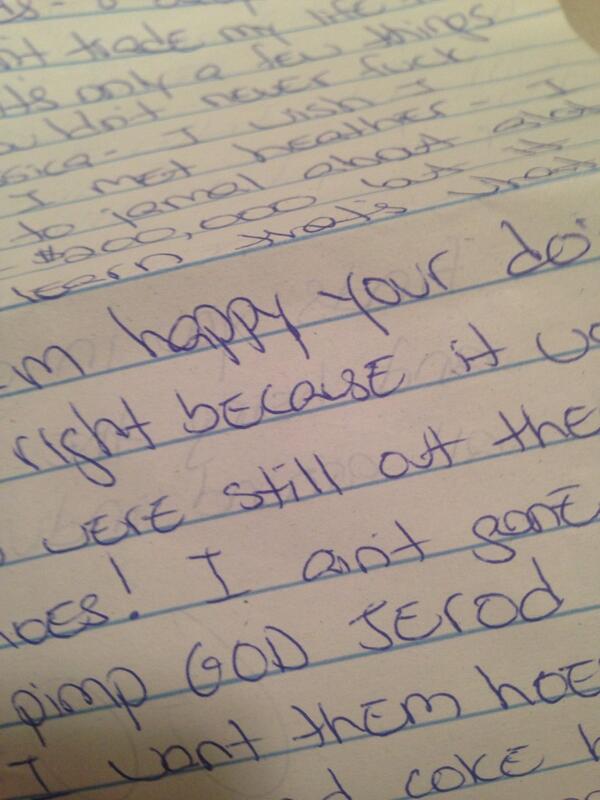 nt trade my life
it's only a few things
ouldn't never fuck
ssica - I wish I
I met heather - I
to jamal about
- $200,000 but it
learn that's what
I'm happy your doi
right because it
were still out the
hoes! I ain't gone
pimp GOD JEROD
I want them hoe
d coke